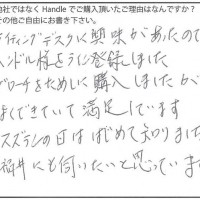 他社ではなく Handle でご購入頂いたご理由はなんですか？
その他ご自由にお書き下さい。
ライティングデスクに興味があったので
ハンドル様を登録しました
ブローチをためしに購入しましたが
よくできていて満足しています
スズランの日ははじめて知りました
福井にも伺いたいと思っています